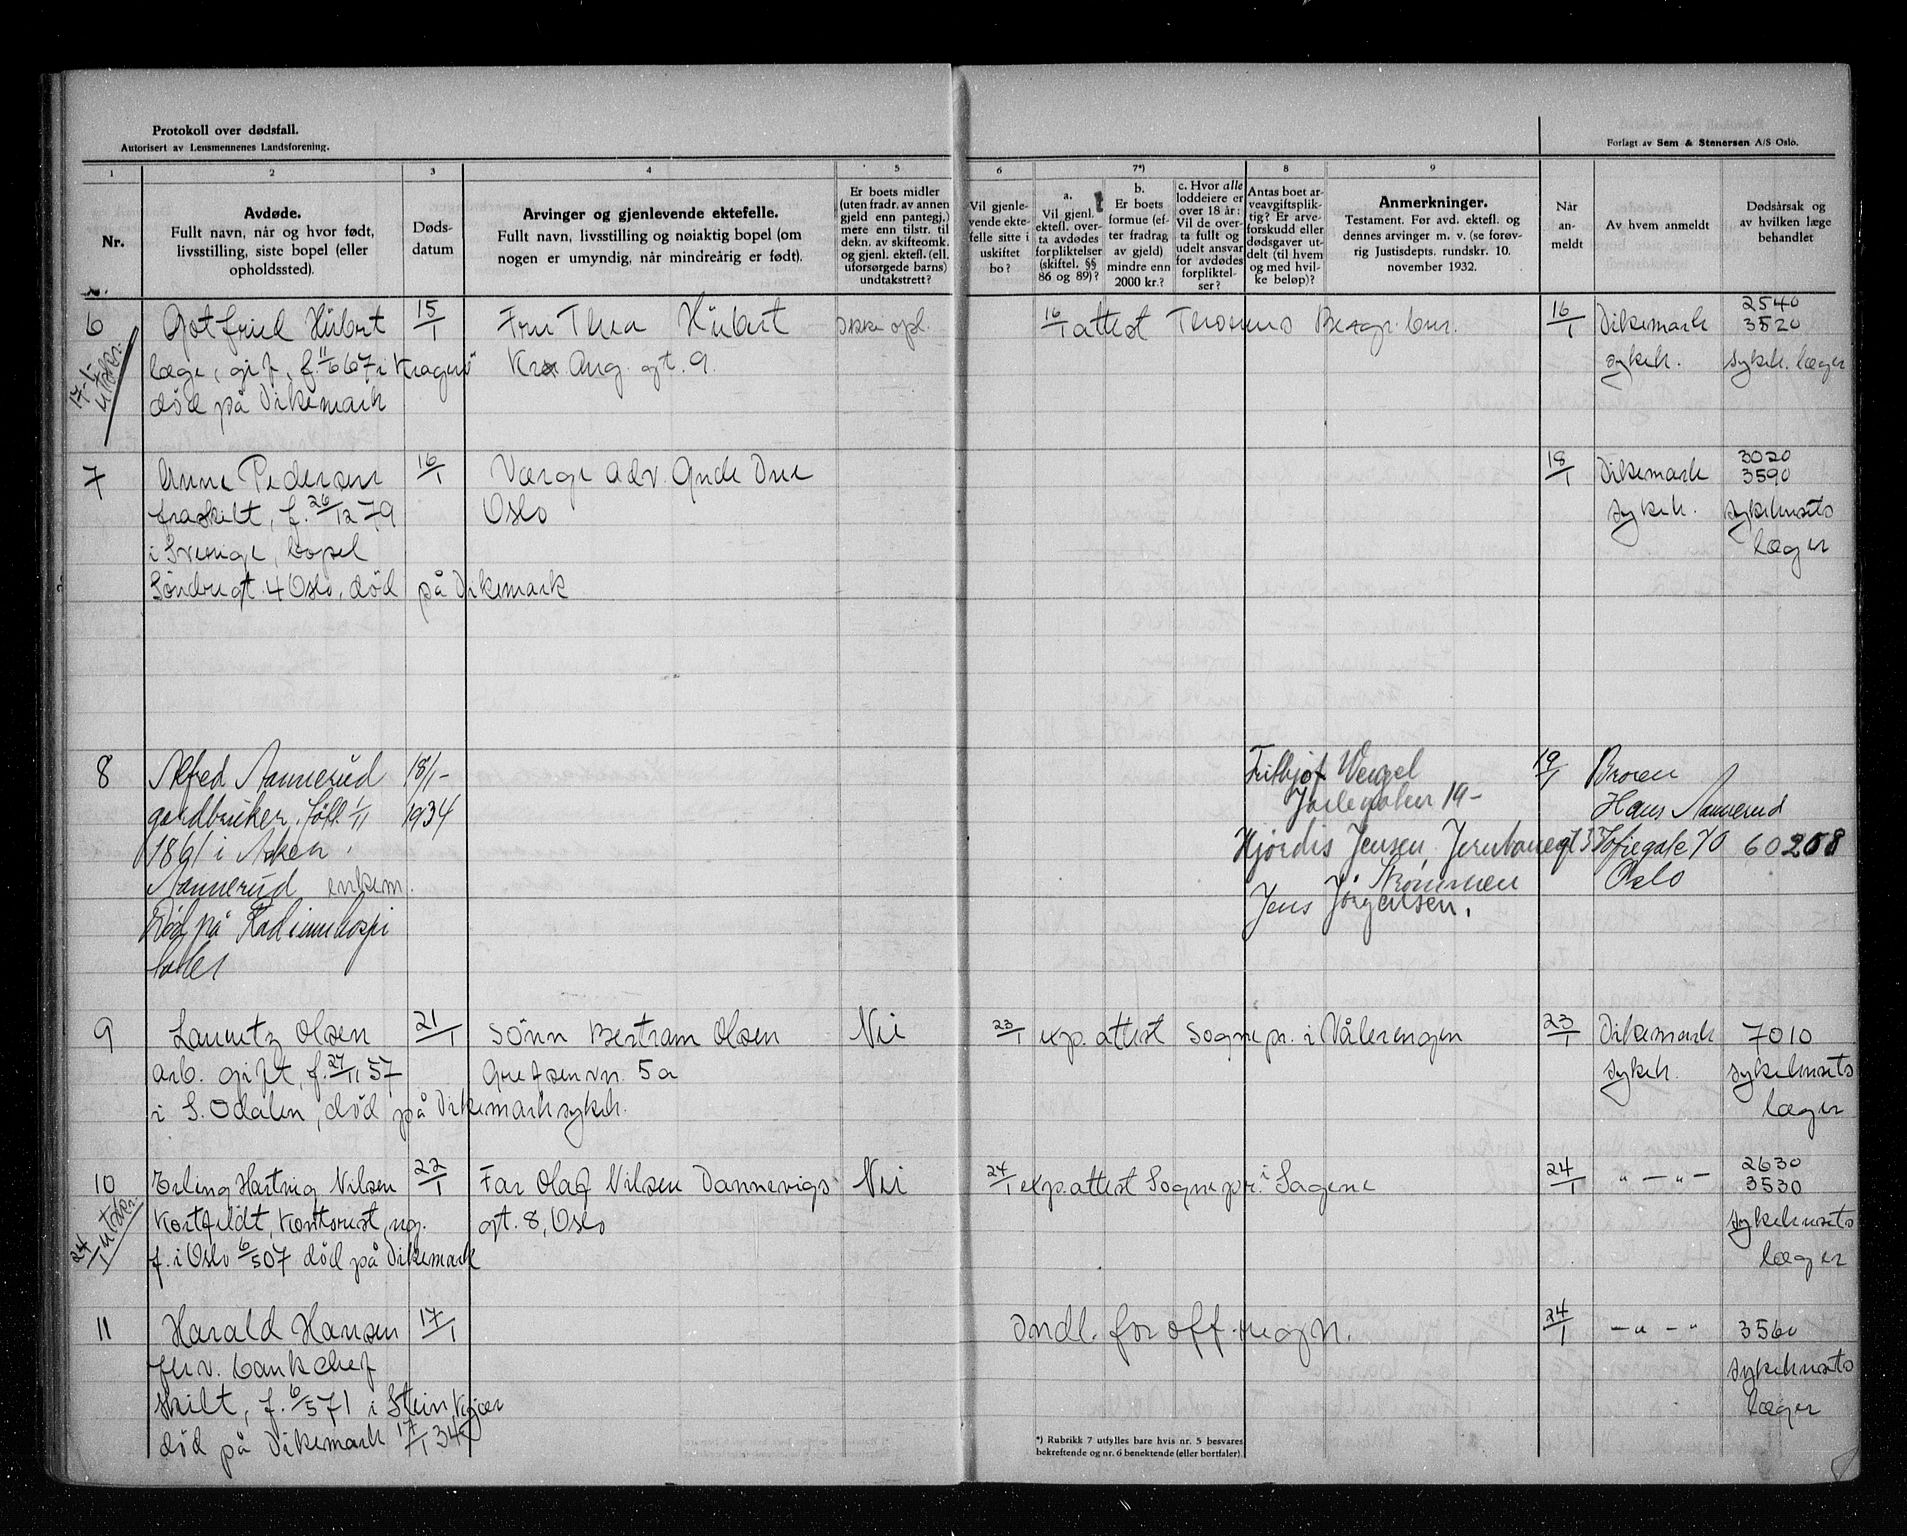 Protokoll over dødsfall.
Autorisert av Lensmennenes Landsforening.
Forlagt av Sem & Stenersen A/S Oslo.
1 2 3 4 5 6 7*) 8 9
Nr.
Avdøde.
Fullt navn, når og hvor født,
livsstilling, siste bopel (eller
opholdssted).
Døds-
datum
Arvinger og gjenlevende ektefelle.
Fullt navn, livsstilling og nøiaktig bopel (om
nogen er umyndig, når mindreårig er født).
Er boets midler
(uten fradr. av annen
gjeld enn pantegj.)
mere enn tilstr. til
dekn. av skifteomk.
og gjenl. ektefl. (ell.
uforsørgede barns)
undtakstrett?
Vil gjenle-
vende ekte-
felle sitte i
uskiftet
bo?
a.
Vil gjenl.
ektefl. over-
ta avdødes
forpliktelser
(skiftel. §§
86 og 89)?
b.
Er boets
formue (ef-
ter fradrag
av gjeld)
mindre enn
2000 kr.?
c. Hvor alle
loddeiere er
over 18 år:
Vil de over-
ta fullt og
udelt ansvar
for avdødes
forpliktel-
ser?
Antas boet ar-
veavgiftsplik-
tig? Er arve-
forskudd eller
dødsgaver ut-
delt (til hvem
og med hvil-
ke beløp)?
Anmerkninger.
Testament. Før avd. ektefl. og
dennes arvinger m. v. (se forøv-
rig Justisdepts. rundskr. 10.
november 1932.
Når
an-
meldt
Av hvem anmeldt
Dødsårsak og
av hvilken læge
behandlet
6
17-1- utskr.
Gotfried Hübert
læge, gift, f. 11/6 67 i Kragerø
død på Dikemark
15/1
Fru Thea Hübert
Kr. Aug. gt. 9.
Ikke opl.
16/1 attest Thorsens Begr. bur.
16/1
Dikemark
sykeh.
2540
3520
sykeh. læger
7
Anne Pedersen
fraskilt, f. 26/12 79
i Sverige, bopel
Søndregt. 4 Oslo, død på Dikemark
16/1
Værge adv. Gude Due
Oslo
18/1
Dikemark
sykeh.
3020
3590
sykehusets
læger
8
Alfred Aannerud
gardbruker. Født 1/11
1861 i Asker
Aannerud enkem.
Død på Radiumhospi
talet
18/1-
1934
Frithjof Wengel
Jarlegaten 19-
Hjørdis Jensen, Jernbanegt 33
Strømmen
Jens Jørgensen.
19/1
Broren
Hans Aannerud
Sofiegate 70
Oslo
60268
9
Lauritz Olsen
arb. gift, f. 27/11 57
i S. Odalen, død på Dikemark sykeh.
21/1
Sønn Bertram Olsen
Grefsenvn. 5a
Nei
23/1 exp. attest Sognepr. i Vålerengen
23/1
Dikemark
sykeh.
7010
sykehusets
læger
10
24/1 utskr.
Erling Hartvig Nilsen
Kortfeldt, kontorist, ug.
f. i Oslo 6/5 07 død på Dikemark
22/1
Far Olaf Nilsen Dannevigs
gt. 8, Oslo
Nei
24/1 exp. attest Sognepr. i Sagene
24/1
" — " —
2630
3530
sykehusets
læger
11
Harald Hansen
fhv. bankchef
skilt, f. 6/5 71 i Steinkjær
død på Dikemark 17/1 34
17/1
Indl. for off. regn.
24/1
— " — "
3560
sykehusets
læger
*) Rubrikk 7 utfylles bare hvis nr. 5 besvares
bekreftende og nr. 6 benektende (eller bortfaler).